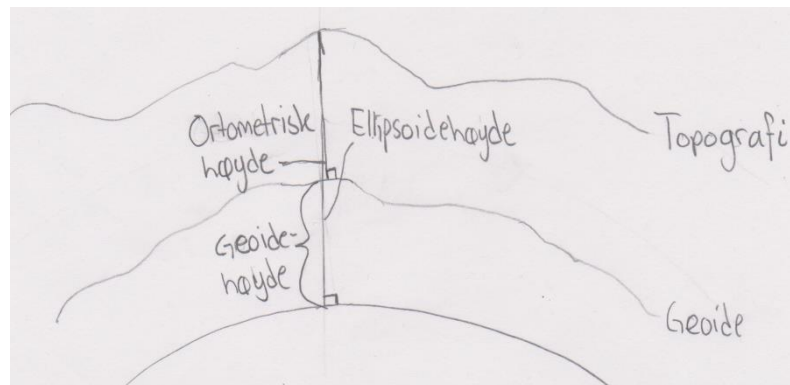 Ortometrisk
høyde
Ellipsoidehøyde
Topografi
Geoide-
høyde
Geoide